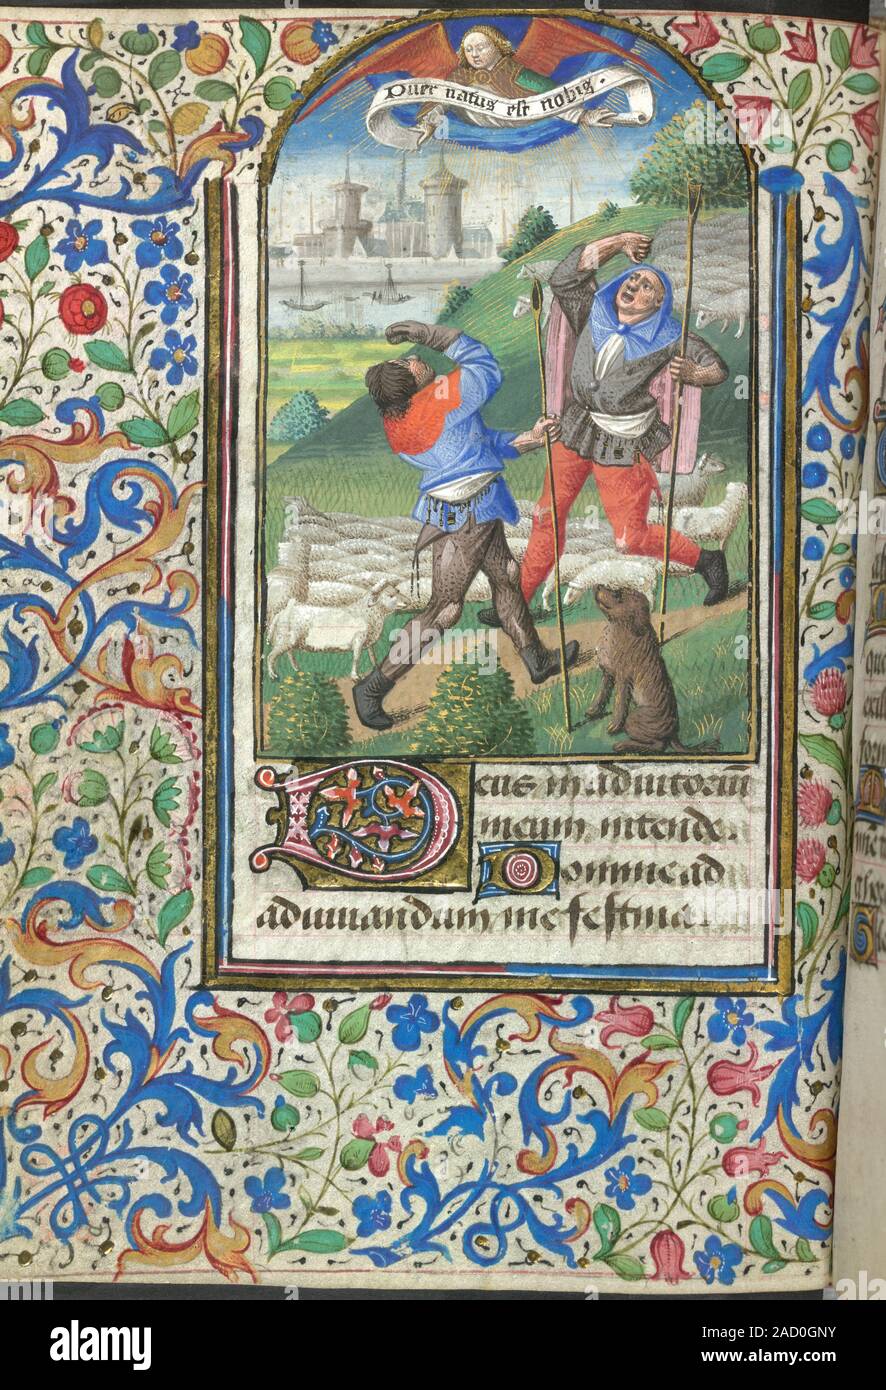 Puer natus est nobis.
Deus in adiutorium
meum intende.
Domine ad
adiuuandum me festina
alamy
Image ID: 2AD0GNY
www.alamy.com